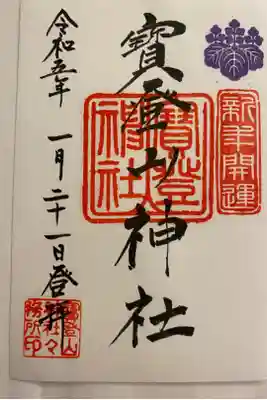 新年開運
寳登山神社
寳登
山神社
令和五年 一月二十一日登拝
寳登山
神社々
務所印